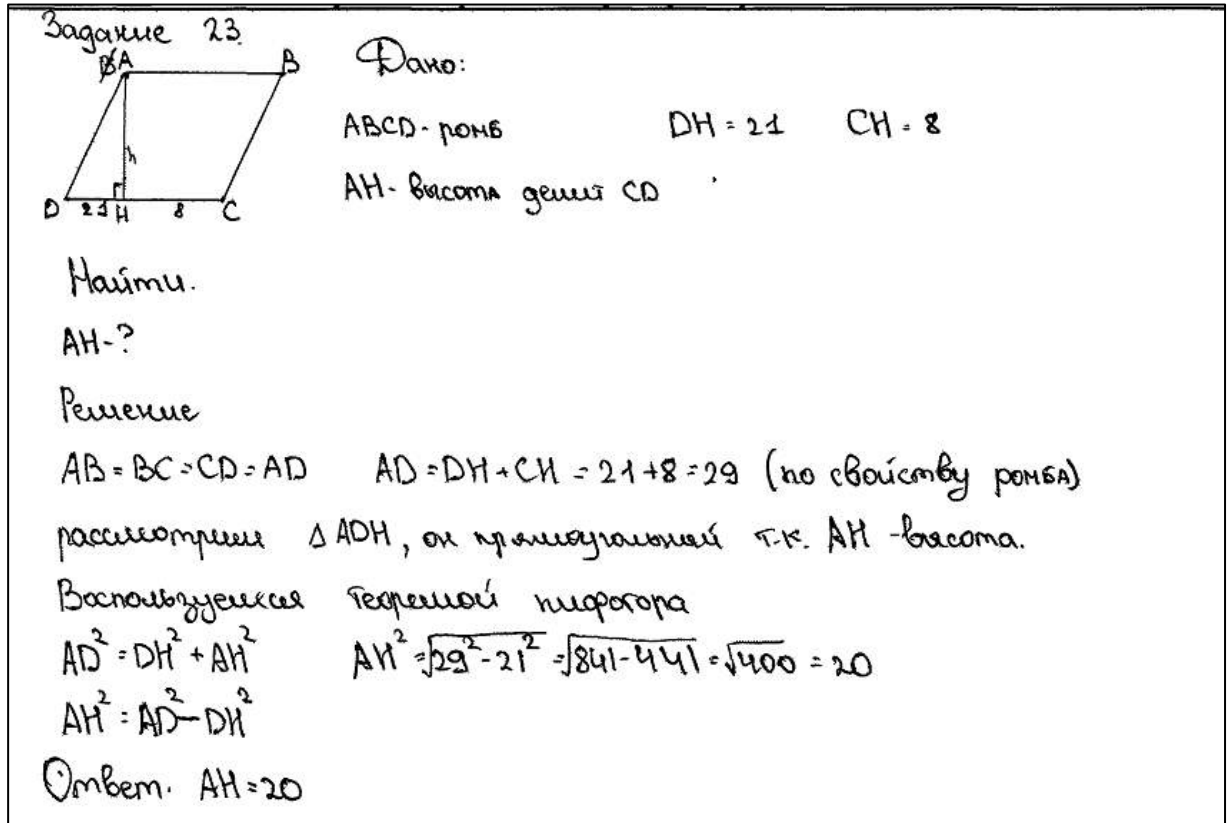 Задание 23.
A B
Дано:
ABCD - ромб DH = 21 CH = 8
AH - высота делит CD
h
D 21 H 8 C
Найти.
AH - ?
Решение
AB = BC = CD = AD AD = DH + CH = 21 + 8 = 29 (по свойству ромба)
рассмотрим Δ ADH, он прямоугольный т.к. AH - высота.
Воспользуемся теоремой пифогора
AD² = DH² + AH² AH² = √29² - 21² = √841 - 441 = √400 = 20
AH² = AD² - DH²
Ответ. AH = 20